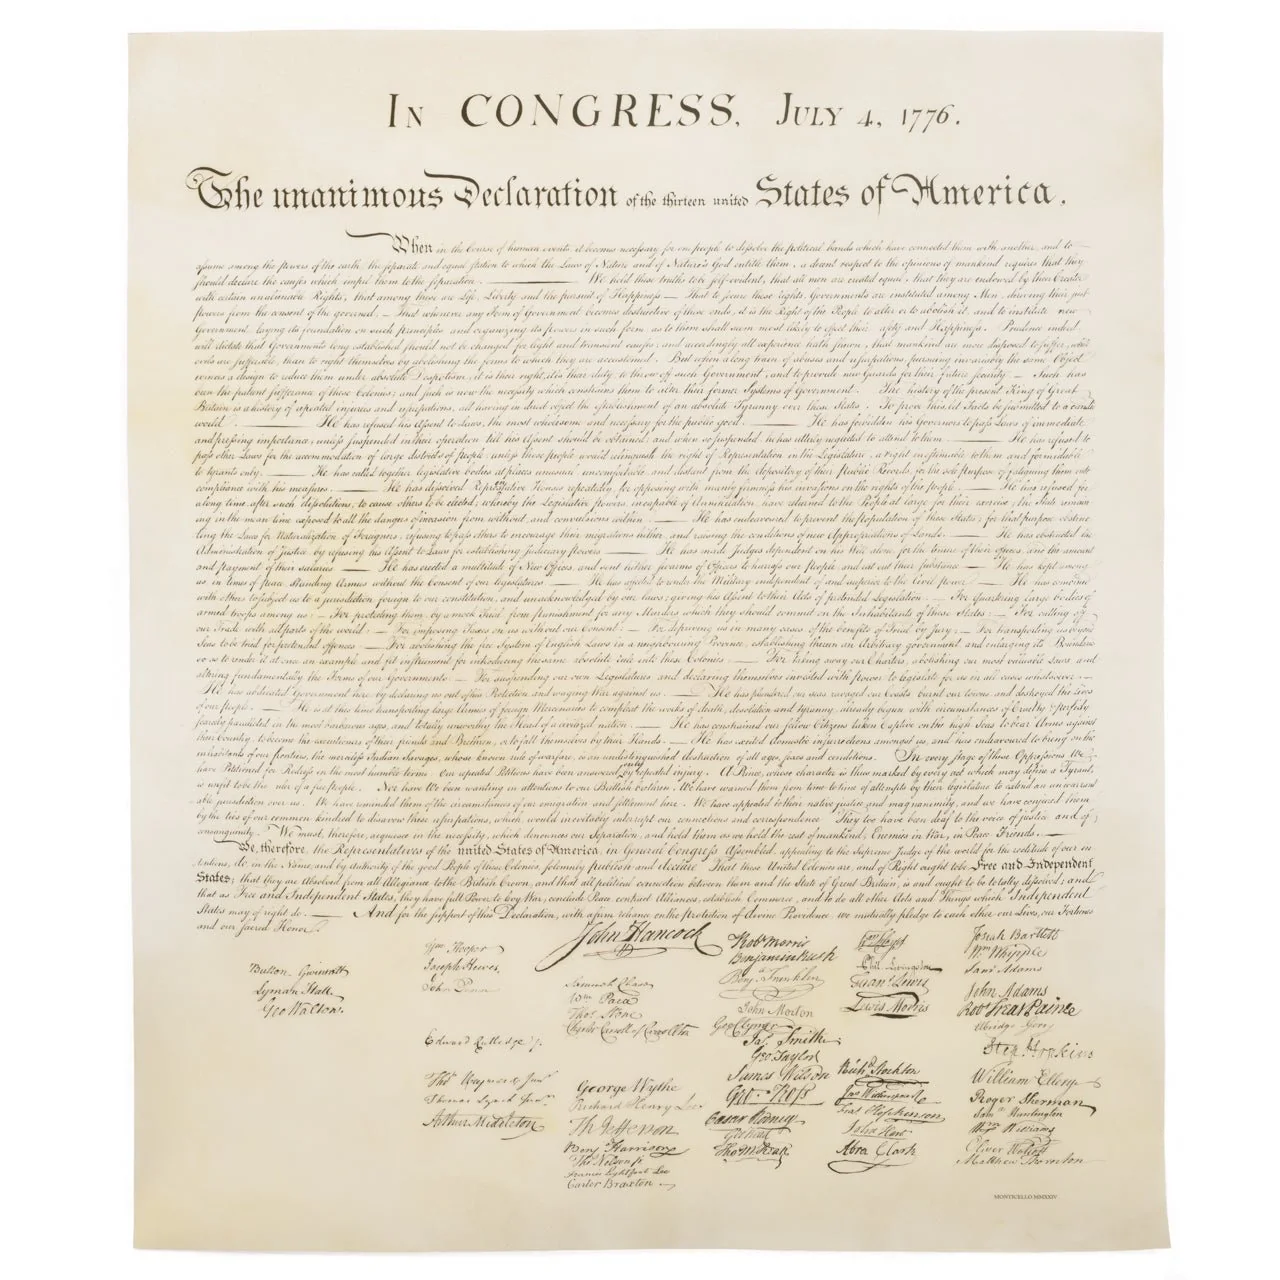 IN CONGRESS, JULY 4, 1776.
The unanimous Declaration of the thirteen united States of America.
When in the Course of human events, it becomes necessary for one people to dissolve the political bands which have connected them with another, and to
assume among the powers of the earth, the separate and equal station to which the Laws of Nature and of Nature's God entitle them, a decent respect to the opinions of mankind requires that they
should declare the causes which impel them to the separation. — We hold these truths to be self-evident, that all men are created equal, that they are endowed by their Creator
with certain unalienable Rights, that among these are Life, Liberty and the pursuit of Happiness — That to secure these rights, Governments are instituted among Men, deriving their just
powers from the consent of the governed, — That whenever any Form of Government becomes destructive of these ends, it is the Right of the People to alter or to abolish it, and to institute new
Government, laying its foundation on such principles and organizing its powers in such form, as to them shall seem most likely to effect their Safety and Happiness. Prudence, indeed,
will dictate that Governments long established should not be changed for light and transient causes; and accordingly all experience hath shewn, that mankind are more disposed to suffer, while
evils are sufferable, than to right themselves by abolishing the forms to which they are accustomed. But when a long train of abuses and usurpations, pursuing invariably the same Object
evinces a design to reduce them under absolute Despotism, it is their right, it is their duty, to throw off such Government, and to provide new Guards for their future security. — Such has
been the patient sufferance of these Colonies; and such is now the necessity which constrains them to alter their former Systems of Government. The history of the present King of Great
Britain is a history of repeated injuries and usurpations, all having in direct object the establishment of an absolute Tyranny over these States. To prove this, let Facts be submitted to a candid
world. — He has refused his Assent to Laws, the most wholesome and necessary for the public good. — He has forbidden his Governors to pass Laws of immediate
and pressing importance, unless suspended in their operation till his Assent should be obtained; and when so suspended, he has utterly neglected to attend to them. — He has refused to
pass other Laws for the accommodation of large districts of people, unless those people would relinquish the right of Representation in the Legislature, a right inestimable to them and formidable
to tyrants only. — He has called together legislative bodies at places unusual, uncomfortable, and distant from the depository of their Public Records, for the sole purpose of fatiguing them into
compliance with his measures. — He has dissolved Representative Houses repeatedly, for opposing with manly firmness his invasions on the rights of the people. — He has refused for
a long time, after such dissolutions, to cause others to be elected; whereby the Legislative powers, incapable of Annihilation, have returned to the People at large for their exercise; the State remain-
ing in the mean time exposed to all the dangers of invasion from without, and convulsions within. — He has endeavoured to prevent the population of these States; for that purpose obstruc-
ting the Laws for Naturalization of Foreigners; refusing to pass others to encourage their migrations hither, and raising the conditions of new Appropriations of Lands. — He has obstructed the
Administration of Justice, by refusing his Assent to Laws for establishing Judiciary powers. — He has made Judges dependent on his Will alone, for the tenure of their offices, and the amount
and payment of their salaries. — He has erected a multitude of New Offices, and sent hither swarms of Officers to harrass our people, and eat out their substance. — He has kept among
us, in times of peace, Standing Armies without the Consent of our legislatures. — He has affected to render the Military independent of and superior to the Civil power. — He has combined
with others to subject us to a jurisdiction foreign to our constitution, and unacknowledged by our laws; giving his Assent to their Acts of pretended Legislation: — For Quartering large bodies of
armed troops among us: — For protecting them, by a mock Trial, from punishment for any Murders which they should commit on the Inhabitants of these States: — For cutting off
our Trade with all parts of the world: — For imposing Taxes on us without our Consent: — For depriving us in many cases, of the benefits of Trial by Jury: — For transporting us beyond
Seas to be tried for pretended offences: — For abolishing the free System of English Laws in a neighbouring Province, establishing therein an Arbitrary government, and enlarging its Boundaries
so as to render it at once an example and fit instrument for introducing the same absolute rule into these Colonies: — For taking away our Charters, abolishing our most valuable Laws, and
altering fundamentally the Forms of our Governments: — For suspending our own Legislatures, and declaring themselves invested with power to legislate for us in all cases whatsoever. —
He has abdicated Government here, by declaring us out of his Protection and waging War against us. — He has plundered our seas, ravaged our Coasts, burnt our towns, and destroyed the lives
of our people. — He is at this time transporting large Armies of foreign Mercenaries to compleat the works of death, desolation and tyranny, already begun with circumstances of Cruelty & perfidy
scarcely paralleled in the most barbarous ages, and totally unworthy the Head of a civilized nation. — He has constrained our fellow Citizens taken Captive on the high Seas to bear Arms against
their Country, to become the executioners of their friends and Brethren, or to fall themselves by their Hands. — He has excited domestic insurrections amongst us, and has endeavoured to bring on the
inhabitants of our frontiers, the merciless Indian Savages, whose known rule of warfare, is an undistinguished destruction of all ages, sexes and conditions. In every stage of these Oppressions We
have Petitioned for Redress in the most humble terms: Our repeated Petitions have been answered only by repeated injury. A Prince, whose character is thus marked by every act which may define a Tyrant,
is unfit to be the ruler of a free people. Nor have We been wanting in attentions to our Brittish brethren. We have warned them from time to time of attempts by their legislature to extend an unwarrant-
able jurisdiction over us. We have reminded them of the circumstances of our emigration and settlement here. We have appealed to their native justice and magnanimity, and we have conjured them
by the ties of our common kindred to disavow these usurpations, which, would inevitably interrupt our connections and correspondence. They too have been deaf to the voice of justice and of
consanguinity. We must, therefore, acquiesce in the necessity, which denounces our Separation, and hold them, as we hold the rest of mankind, Enemies in War, in Peace Friends. —
We, therefore, the Representatives of the united States of America, in General Congress, Assembled, appealing to the Supreme Judge of the world for the rectitude of our in-
tentions, do, in the Name, and by Authority of the good People of these Colonies, solemnly publish and declare, That these United Colonies are, and of Right ought to be Free and Independent
States; that they are Absolved from all Allegiance to the British Crown, and that all political connection between them and the State of Great Britain, is and ought to be totally dissolved; and
that as Free and Independent States, they have full Power to levy War, conclude Peace, contract Alliances, establish Commerce, and to do all other Acts and Things which Independent
States may of right do. — And for the support of this Declaration, with a firm reliance on the protection of divine Providence, we mutually pledge to each other our Lives, our Fortunes
and our sacred Honor.
Button Gwinnett
Lyman Hall
Geo Walton.
Wm Hooper
Joseph Hewes,
John Penn
Edward Rutledge /.
Thos Heyward Junr
Thomas Lynch Junr
Arthur Middleton
John Hancock
Samuel Chase
Wm Paca
Thos Stone
Charles Carroll of Carrollton
George Wythe
Richard Henry Lee
Th Jefferson
Benj Harrison
Thos Nelson jr
Francis Lightfoot Lee
Carter Braxton
Robt Morris
Benjamin Rush
Benj Franklin
John Morton
Geo Clymer
Jas Smith
Geo Taylor
James Wilson
Geo. Ross
Caesar Rodney
Geo Read
Tho M:Kean
Wm Floyd
Phil. Livingston
Frans Lewis
Lewis Morris
Richd Stockton
Jno Witherspoon
Fras Hopkinson
John Hart
Abra Clark
Josiah Bartlett
Wm Whipple
Saml Adams
John Adams
Robt Treat Paine
Elbridge Gerry
Step. Hopkins
William Ellery
Roger Sherman
Saml Huntington
Wm Williams
Oliver Wolcott
Matthew Thornton
MONTICELLO MMXXIV